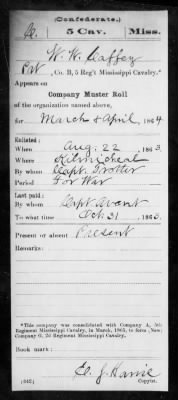 (Confederate.)
C. 5 Cav. Miss.
W. W. Caffey
Pvt, Co. B, 5 Reg't Mississippi Cavalry.*
Appears on
Company Muster Roll
of the organization named above,
for March & April, 1864
Enlisted:
When Aug. 22, 1863.
Where
By whom Capt. Trotter
Period For War
Last paid:
By whom Capt Avant
To what time Oct 31, 1863.
Present or absent Present
Remarks:
*This company was consolidated with Company A, 5th
Regiment Mississippi Cavalry, in March, 1865, to form (New)
Company G, 2d Regiment Mississippi Cavalry.
Book mark:
(642)
Copyist.